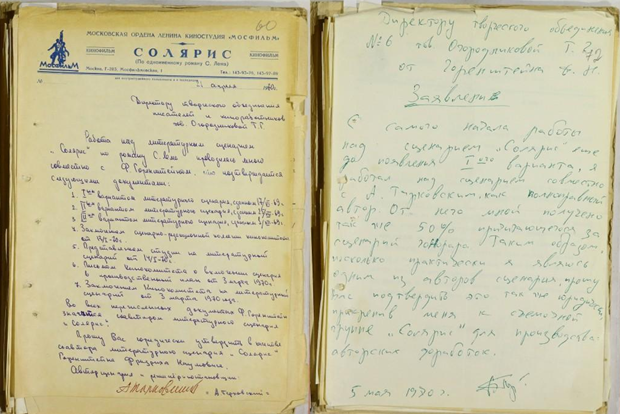 60
МОСКОВСКАЯ ОРДЕНА ЛЕНИНА КИНОСТУДИЯ «МОСФИЛЬМ»
КИНОФИЛЬМ СОЛЯРИС КИНОФИЛЬМ
(По одноименному роману С. Лема)
МОСФИЛЬМ
Москва, Мосфильмовская, 1
21 апреля
Директору творческого объединения
писателей и киноработников
тов Огородниковой Т.Г
Работа над литературным сценарием
"Солярис" по роману С. Лема проведена мною
совместно с Ф Горенштейном, что подтверждается
следующими документами:
1. I вариантом литературного сценария,
2. II вариантом литературного сценария,
3. III вариантом литературного сценария,
4. Заключением сценарно-редакционной коллегии
от
5. Представлением студии на литературный
сценарий от
6. Письмом Кинокомитета о включении сценария
в производственный план от 3 марта 1970г.
7. Заключением Кинокомитета по литературному
сценарию от 3 марта 1970 года.
Во всех перечисленных документах Ф Горенштейн
значится соавтором литературного сценария
"Солярис".
Прошу Вас юридически утвердить в качестве
соавтора литературного сценария "Солярис"
Горенштейна Фридриха Наумовича.
Автор сценария - режиссер-постановщик
А Тарковский
Директору творческого объединения
№6 тов Огородниковой Т.
от Горенштейна Ф. Н.
Заявление
С самого начала работы
над сценарием "Солярис" еще
до появления I ого варианта, я
работал над сценарием совместно
с А Тарковским, как полноправный
автор. От него мной получено
так же 50% причитающегося за
сценарий гонорара. Таким образом
поскольку практически я являюсь
одним из авторов сценария, прошу
Вас подтвердить это так же юридически,
прикрепив меня к съемочной
группе "Солярис" для производства
авторских доработок.
5 мая 1970 г.